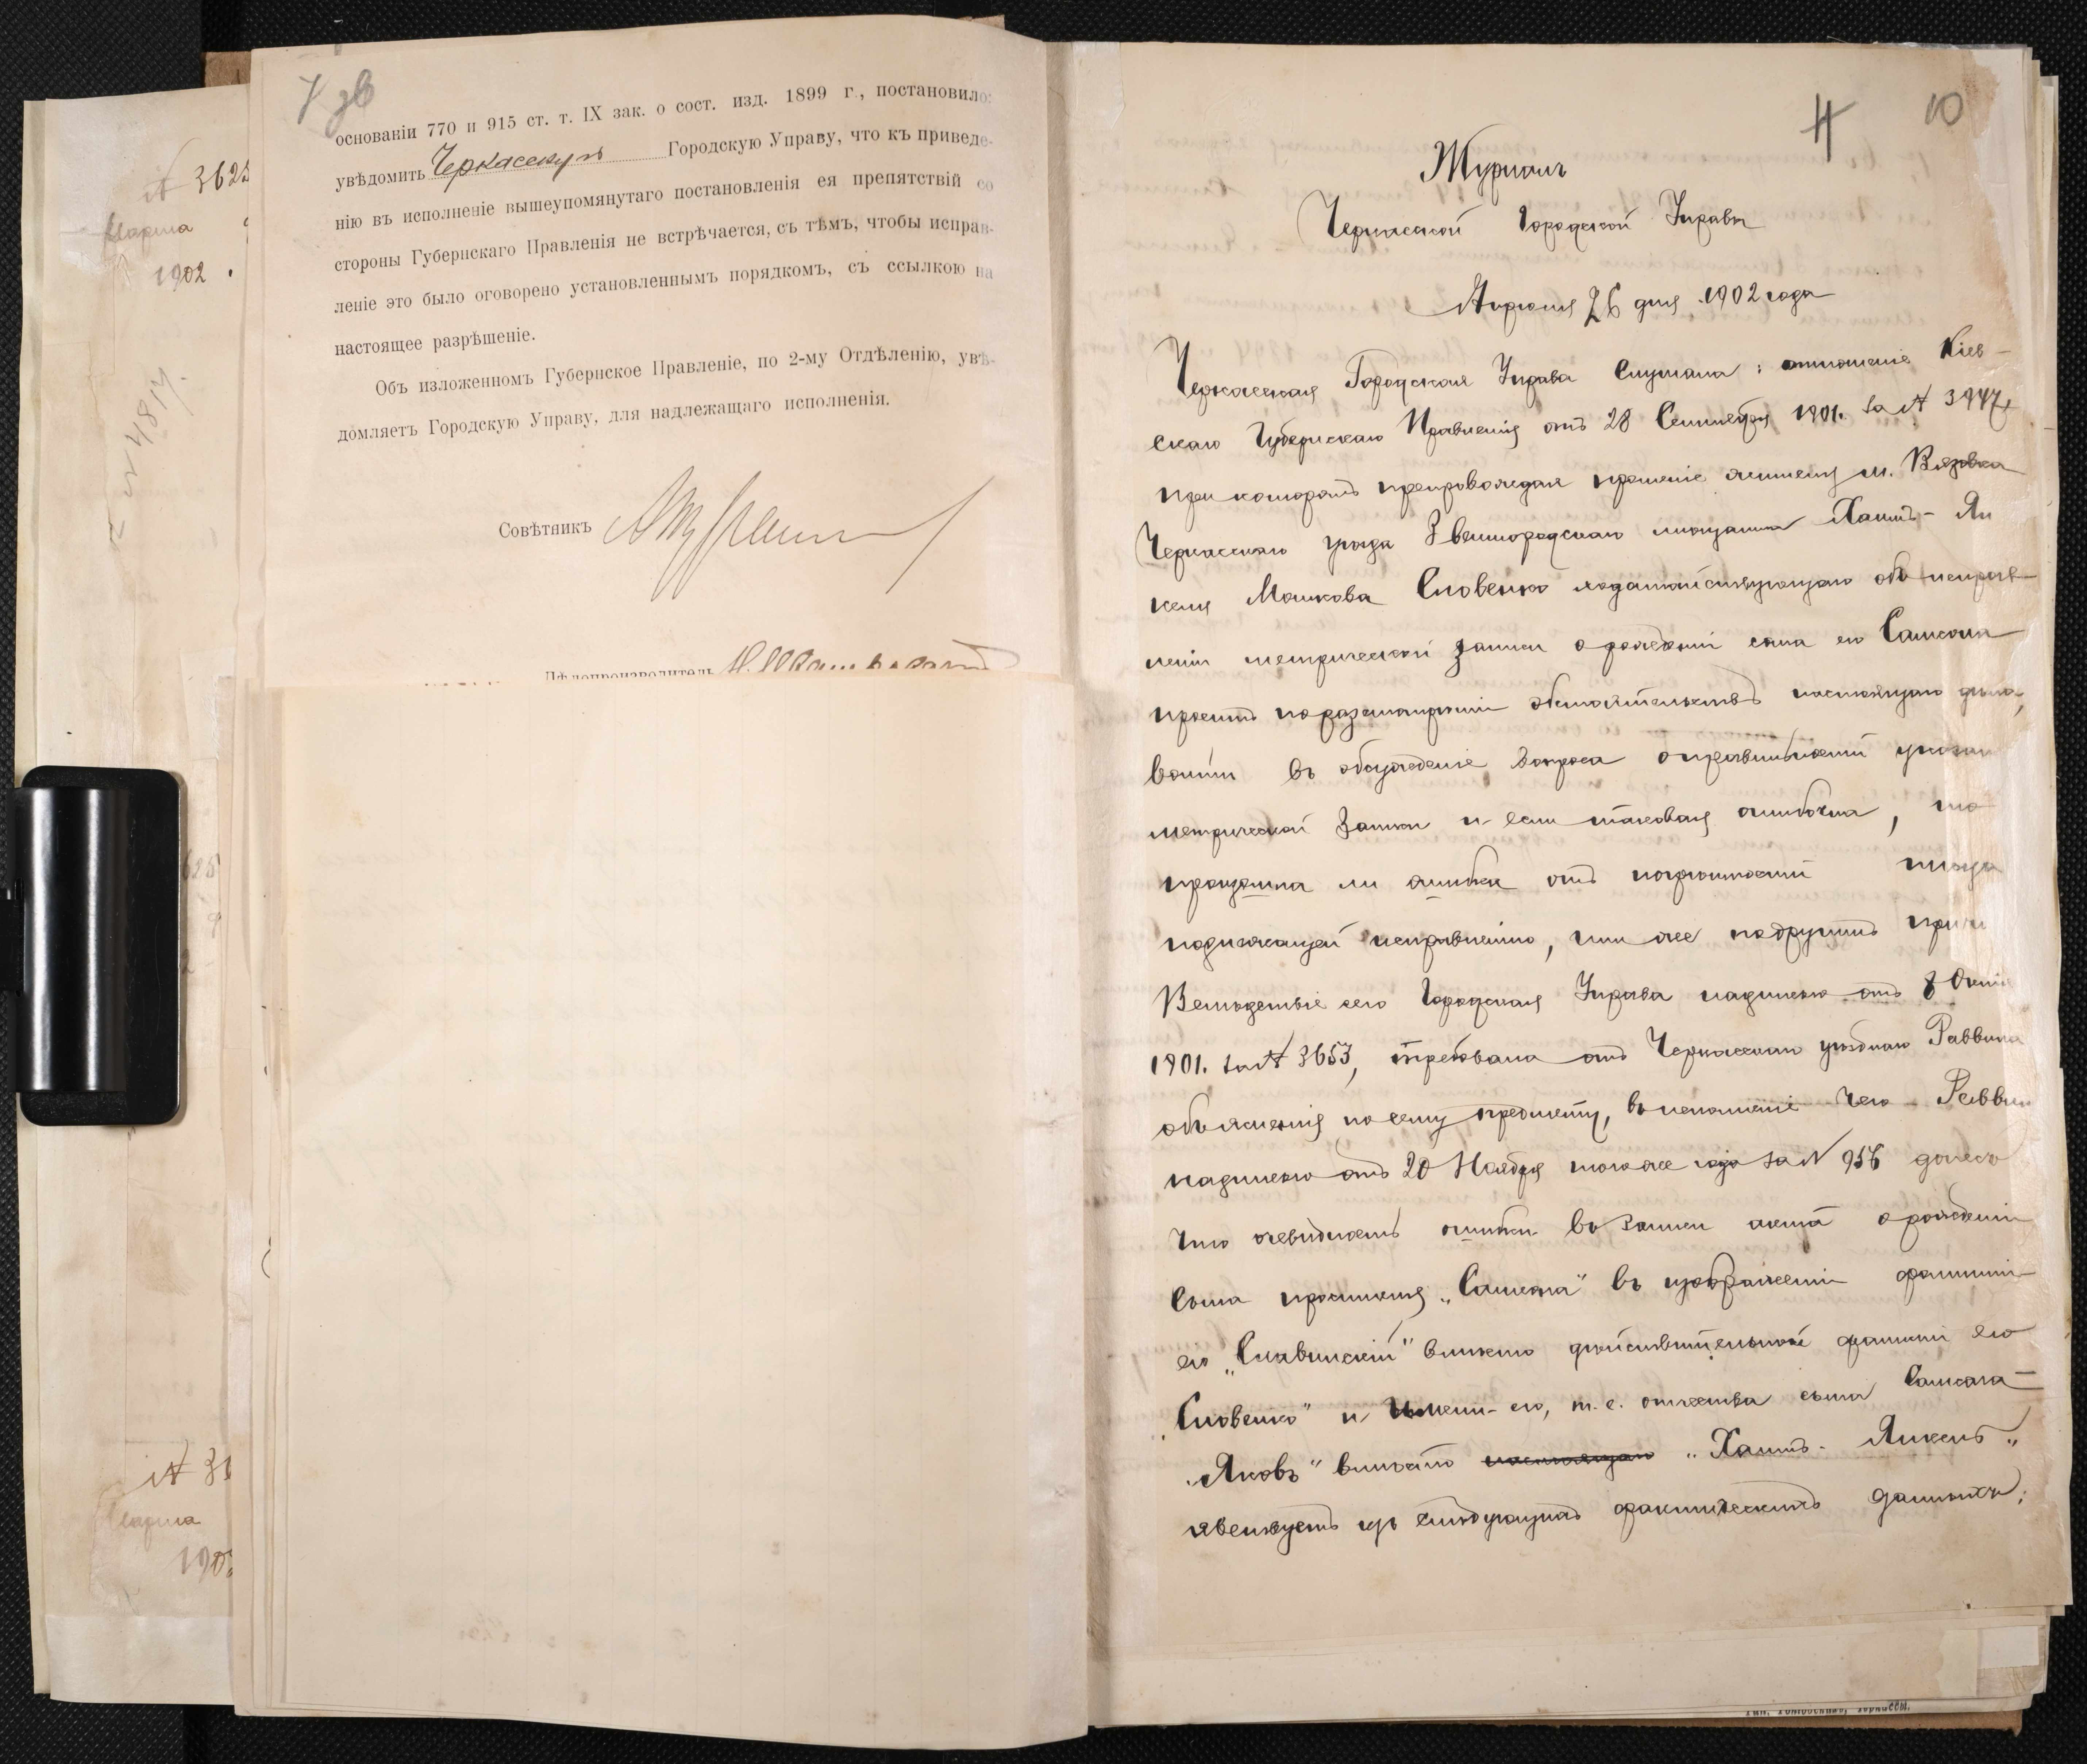 № 3625
Марта
1902 .
7 зв
основаніи 770 и 915 ст. т. IX зак. о сост. изд. 1899 г., постановило:
увѣдомить Черкасскую Городскую Управу, что къ приведе-
нію въ исполненіе вышеупомянутаго постановленія ея препятствій со
стороны Губернскаго Правленія не встрѣчается, съ тѣмъ, чтобы исправ-
леніе это было оговорено установленнымъ порядкомъ, съ ссылкою на
настоящее разрѣшеніе.
Объ изложенномъ Губернское Правленіе, по 2-му Отдѣленію, увѣ-
домляетъ Городскую Управу, для надлежащаго исполненія.
Совѣтникъ
Дѣлопроизводитель
Марта
10
Журналъ
Черкасской Городской Управы
Апрѣля 26 дня 1902 года
Черкасская Городская Управа Слушала: отношеніе Кіев-
скаго Губернскаго Правленія отъ 28 Сентября 1901. за № 3947,
при которомъ препровождая прошеніе жителя м. Вязовка
Черкасскаго уѣзда Звенигородскаго мѣщанина Хаимъ-Ян
келя Мошкова Словенко ходатайствующаго объ исправ-
леніи метрической записи о рожденіи сына его Самсона
проситъ по разсмотрѣніи обстоятельствъ настоящаго дѣла,
войти въ обсужденіе вопроса о правильности указан
метрической записи и если таковая ошибочна, то
произошла ли ошибка отъ погрѣшности писца
подлежащей исправленію, или же по другимъ причи
Вслѣдствіе сего Городская Управа надписью отъ 8 Октяб
1901. за № 3653, требовала отъ Черкасскаго уѣзднаго Раввина
объясненія по сему предмету, во исполненіе чего Раввин
надписью отъ 20 Ноября того же года за № 956 донесъ
что очевидность ошибки въ записи акта о рожденіи
сына просителя „Самсона" въ изображеніи фамиліи
его „Славинскій" вмѣсто дѣйствительной фамиліи его
„Словенко" и имени его, т. е. отчества сына Самсона
„Яковъ" вмѣсто настоящаго „Хаимъ-Янкель"
явствуетъ изъ слѣдующихъ фактическихъ данныхъ:
Тип. Гомбосхава, Черкассы.